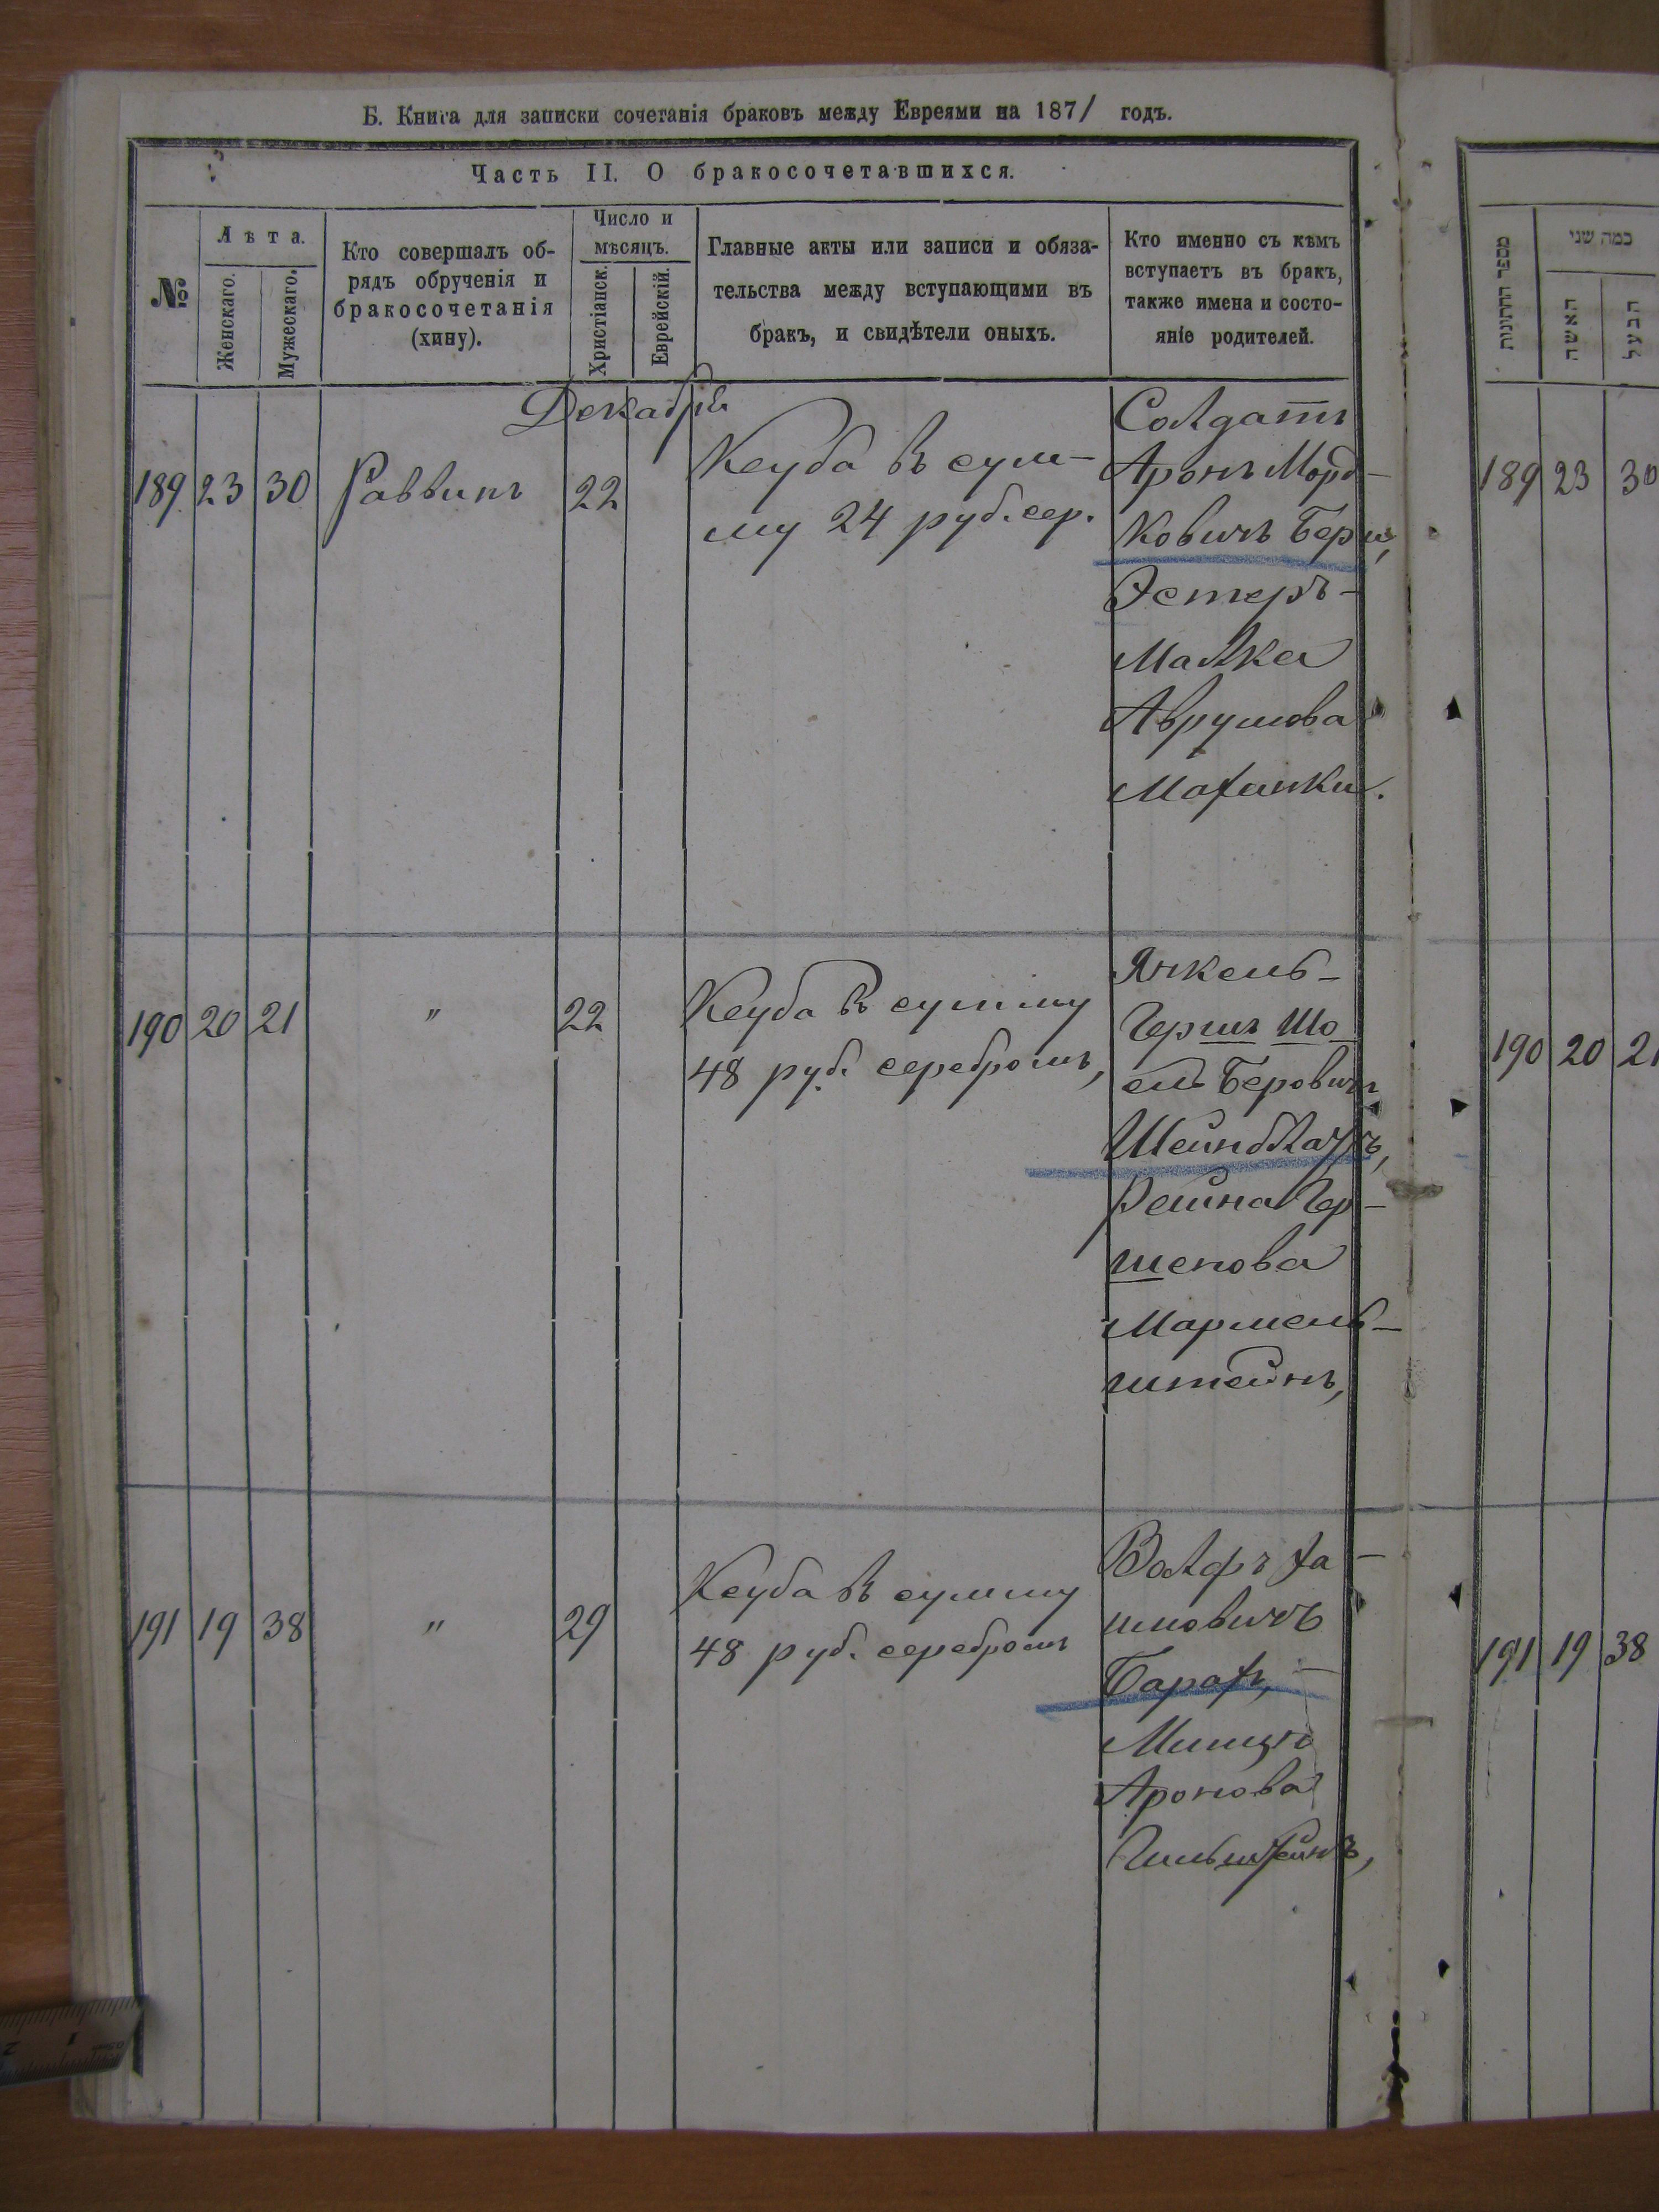 Б. Книга для записки сочетанія браковъ между Евреями на 1871 годъ.
Часть II. О бракосочетавшихся.
№
Лѣта.
Женскаго.
Мужескаго.
Кто совершалъ об-
рядъ обрученія и
бракосочетанія
(хину).
Число и
мѣсяцъ.
Христіанск.
Еврейскій.
Главные акты или записи и обяза-
тельства между вступающими въ
бракъ, и свидѣтели оныхъ.
Кто именно съ кѣмъ
вступаетъ въ бракъ,
также имена и состо-
яніе родителей.
Декабря
189 23 30 Раввинъ 22
Кеуба въ сум-
му 24 руб. сер.
Солдатъ
Аронъ Морд-
ковичъ Бериз,
Эстеръ-
Малка
Аврумова
190 20 21 " 22
Кеуба въ сумму
48 руб. серебромъ,
Янкель-
Герш Шо
ель Беровичъ
Шейнблатъ,
Рейна Гер-
шенова
Мармель-
штейнъ,
191 19 38 " 29
Кеуба въ сумму
48 руб. серебромъ
Волфъ Ха-
имовичъ
Барахъ,
Миндля
Аронова
מספר החתונות
כמה שני
האשה
הבעל
189 23 30
190 20 21
191 19 38